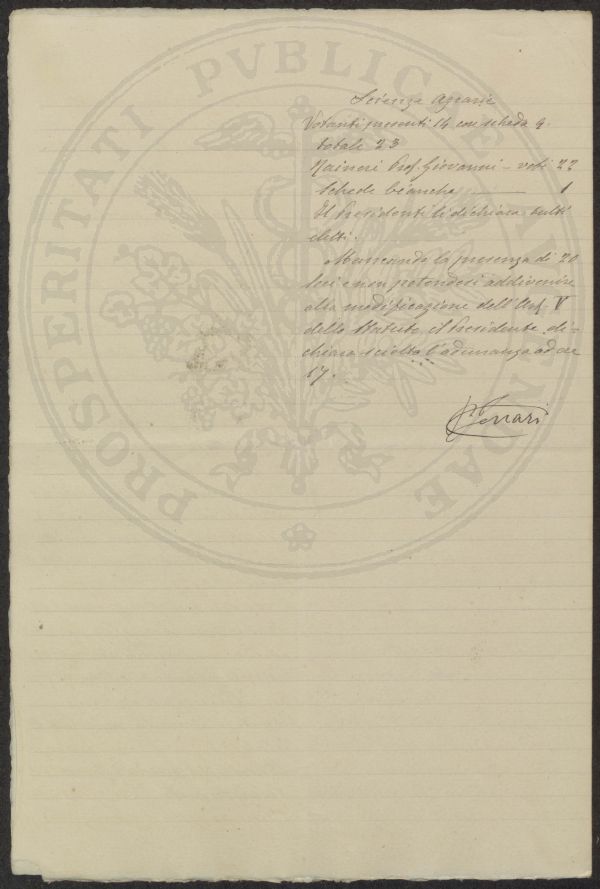 PROSPERITATI PVBLICAE AVGENDAE
Scienze Agrarie
Votanti presenti 14 con scheda 9
totale 23
Raineri Prof. Giovanni – voti 22
Schede bianche — 1
Il Presidente li dichiara tutti
eletti.
Mancando la presenza di 20
Soci e non potendosi addivenire
alla modificazione dell'Art. V
dello Statuto il Presidente di-
chiara sciolta l'adunanza ad ore
17.
Ferrari